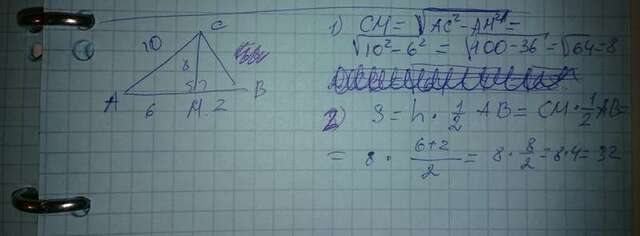 C
10
8
A
6
M
2
B
1) CM = √AC² - AM² =
√10² - 6² = √100 - 36 = √64 = 8
2) S = h · 1/2 AB = CM · 1/2 AB =
= 8 · (6+2)/2 = 8 · 8/2 = 8 · 4 = 32